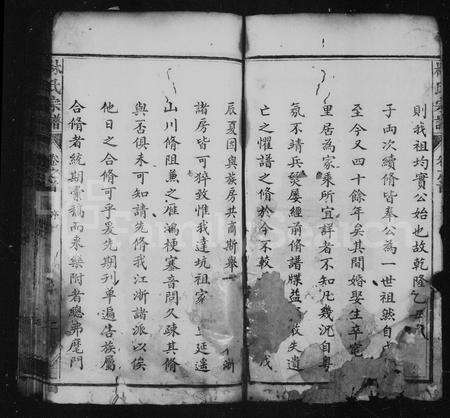 則我祖均實公始也故乾隆乙
子兩次續脩皆奉公為一世祖然自
至今又四十餘年矣其間婚娶生卒
里居為家乘所宜詳者不知凡幾況自粵
氛不靖兵燹屢經前脩譜牒益 散失遺
亡之懼譜之脩於今不較 戊
辰夏因與族房共商斯舉 浙
諸房皆可猝致惟我達坑祖家 延遙
山川脩阻熏之雁鴻梗塞音問久疎其脩
與否俱未可知請先脩我江浙諸派以俟
他日之合脩可乎爰先期列單遍告族屬
合脩者統期彙稿而來樂附者聽弗麾門
林氏宗譜
卷之首
林氏宗譜
卷之首